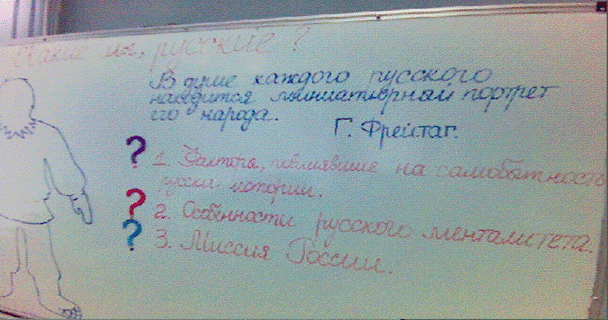 Какие мы, русские?
В душе каждого русского
находится миниатюрный портрет
его народа.
Г. Фрейтаг.
? 1. Факторы, повлиявшие на самобытность
русска истории.
? 2. Особенности русского менталитета.
? 3. Миссия России.